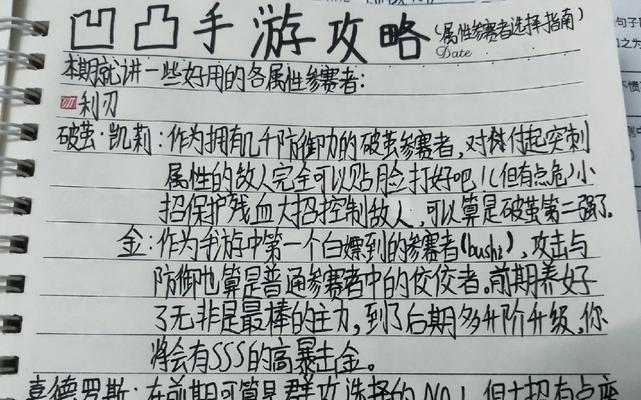 凹凸手游攻略(属性参赛者选择指南)
Date
本期就讲一些好用的各属性参赛者:
利刃
破茧·凯莉:作为拥有几千防御力的破茧参赛者,对付起突刺
属性的敌人完全可以贴脸打好吧!(但有点危)小
招保护残血大招控制敌人,可以算是破茧第二强了。
金:作为手游中第一个白嫖到的参赛者(bushi),攻击与
防御也算是普通参赛者中的佼佼者。前期养好
了无非是最棒的主力,到了后期多升阶升级,你
将会有SSS的高暴击金。
嘉德罗斯:在前期可算是群攻选择的NO.1,但大招有点